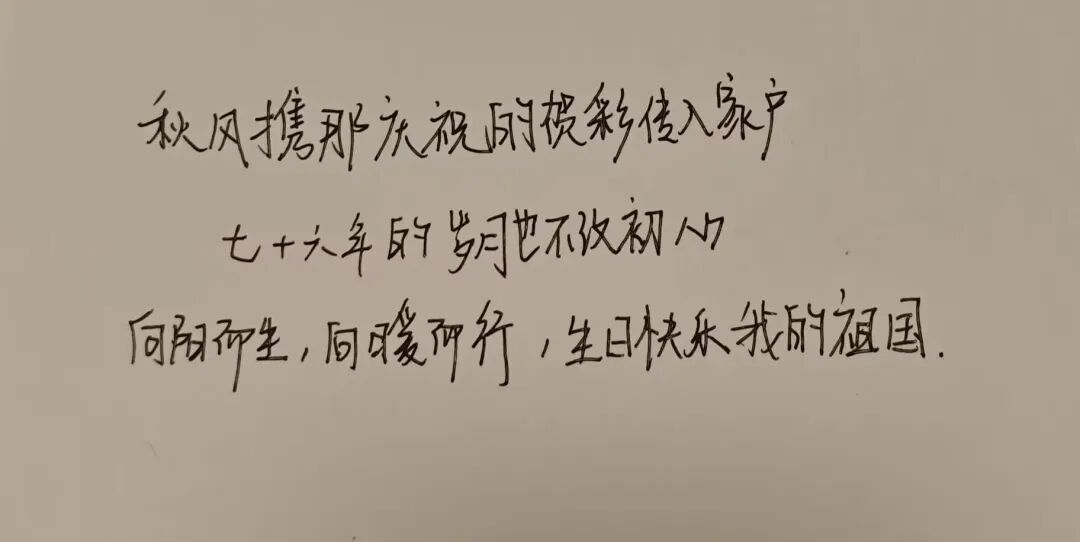 秋风携那庆祝的贺彩传入家户
七十六年的岁月也不改初心
向阳而生,向暖而行,生日快乐我的祖国.